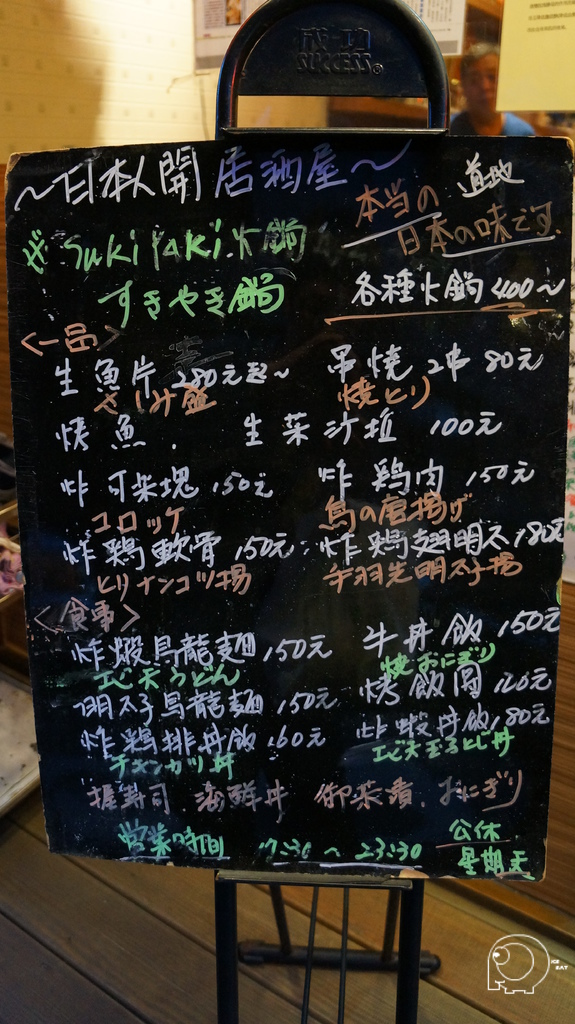 成功
SUCCESS®
~日本人開居酒屋~
道地
本当の
日本の味です.
Sukiyaki.火鍋
すきやき鍋
各種火鍋400~
<一品>
生魚片 280元起~ 串燒 2串 80元
さしみ盛 焼とり
烤魚. 生菜沙拉 100元
炸可樂塊 150元 炸鶏肉 150元
コロッケ 鳥の唐揚げ
炸鶏軟骨 150元 炸鶏翅明太 180元
トリナンコツ揚 手羽先明太子揚
<食事>
炸蝦烏龍麺 150元 牛丼飯 150元
エビ天うどん 焼おにぎり
明太子烏龍麺 150元 烤飯岡 120元
炸鶏排丼飯 160元 炸蝦丼飯 180元
チキンカツ丼 エビ天玉子とじ丼
握壽司 海鮮丼 御茶漬. おにぎり
営業時間 17:30 ~ 23:30
公休
星期天